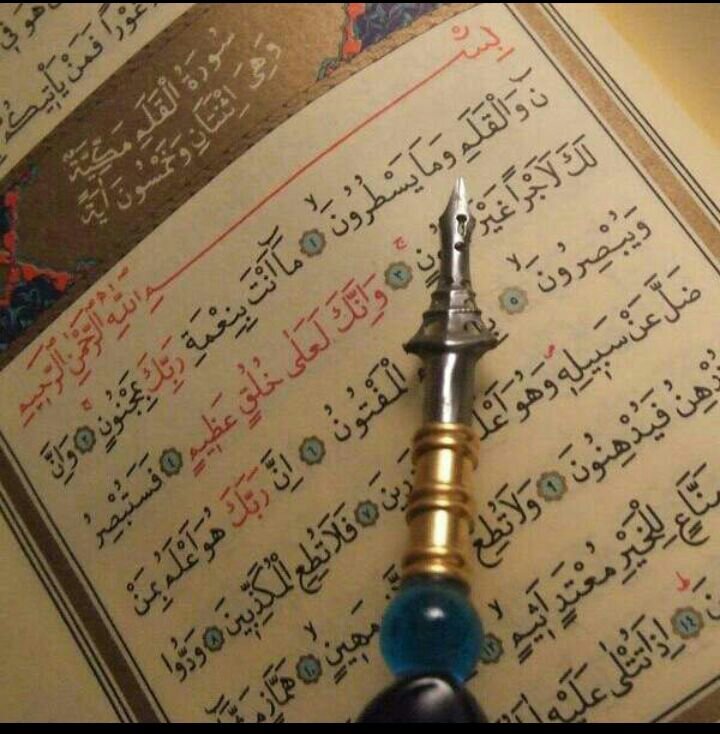 غَوْرًا فَمَنْ يَأْتِيكُمْ
سُورَةُ الْقَلَمِ مَكِّيَّةٌ
وَهِيَ اِثْنَتَانِ وَخَمْسُونَ اٰيَةً
بِسْمِ اللّٰهِ الرَّحْمٰنِ الرَّحِيمِ
نٓ وَالْقَلَمِ وَمَا يَسْطُرُونَ ١ مَٓا اَنْتَ بِنِعْمَةِ رَبِّكَ بِمَجْنُونٍ ٢ وَاِنَّ
لَكَ لَاَجْرًا غَيْرَ ٣ وَاِنَّكَ لَعَلٰى خُلُقٍ عَظِيمٍ ٤ فَسَتُبْصِرُ
وَيُبْصِرُونَ ٥ الْمَفْتُونُ ٦ اِنَّ رَبَّكَ هُوَ اَعْلَمُ بِمَنْ
ضَلَّ عَنْ سَبِيلِهِ وَهُوَ ٧ فَلَا تُطِعِ الْمُكَذِّبِينَ ٨ وَدُّوا
فَيُدْهِنُونَ ٩ وَلَا تُطِعْ مَهِينٍ ١٠ هَمَّازٍ
لِلْخَيْرِ مُعْتَدٍ اَثِيمٍ ١٢
١٤ اِذَا تُتْلٰى عَلَيْهِ